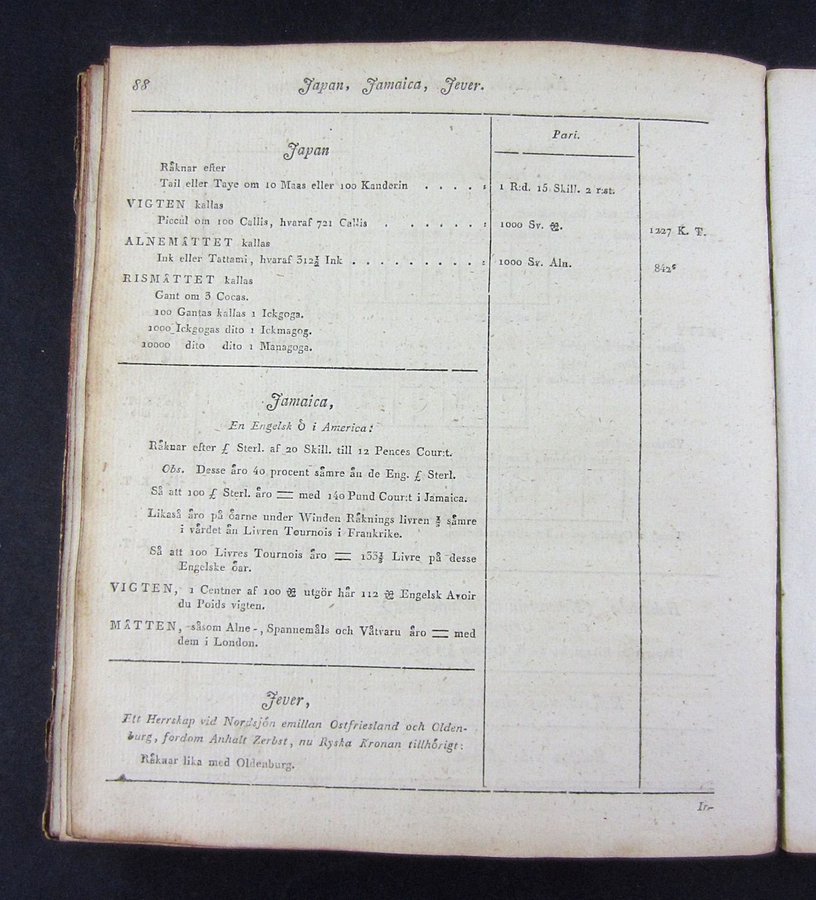 88
Japan, Jamaica, Jever.
Pari.
Japan
Råknar efter
Tail eller Taye om 10 Maas eller 100 Kanderin . . . . : 1 R:d. 15 Skill. 2 r:st.
VIGTEN kallas
Piccul om 100 Callis, hvaraf 721 Callis . . . . . . : 1000 Sv. ℔. 1227 K. T.
ALNEMÅTTET kallas
Ink eller Tattami, hvaraf 312½ Ink . . . . . . . . . . : 1000 Sv. Aln. 842
RISMÅTTET kallas
Gant om 3 Cocas.
100 Gantas kallas 1 Ickgoga.
1000 Ickgogas dito 1 Ickmagog.
10000 dito dito 1 Managoga.
Jamaica,
En Engelsk Ö i America:
Råknar efter £ Sterl. af 20 Skill. till 12 Pences Cour:t.
Obs. Desse åro 40 procent såmre ån de Eng. £ Sterl.
Så att 100 £ Sterl. åro == med 140 Pund Cour:t i Jamaica.
Likaså åro på öarne under Winden Råknings livren såmre
i vårdet ån Livren Tournois i Frankrike.
Så att 100 Livres Tournois åro == 133⅓ Livre på desse
Engelske öar.
VIGTEN, 1 Centner af 100 ℔ utgör hår 112 ℔ Engelsk Avoir
du Poids vigten.
MÅTTEN, såsom Alne-, Spannemåls och Våtvaru åro == med
dem i London.
Jever,
Ett Herrskap vid Nordsjön emillan Ostfriesland och Olden-
burg, fordom Anhalt Zerbst, nu Ryska Kronan tillhörigt:
Råknar lika med Oldenburg.
Ir-